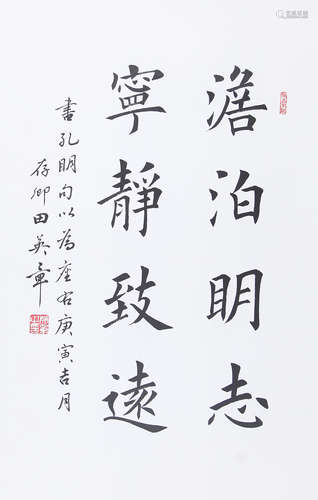 澹泊明志
寧静致遠
書孔明句以為座右庚寅吉月
存卿田英章